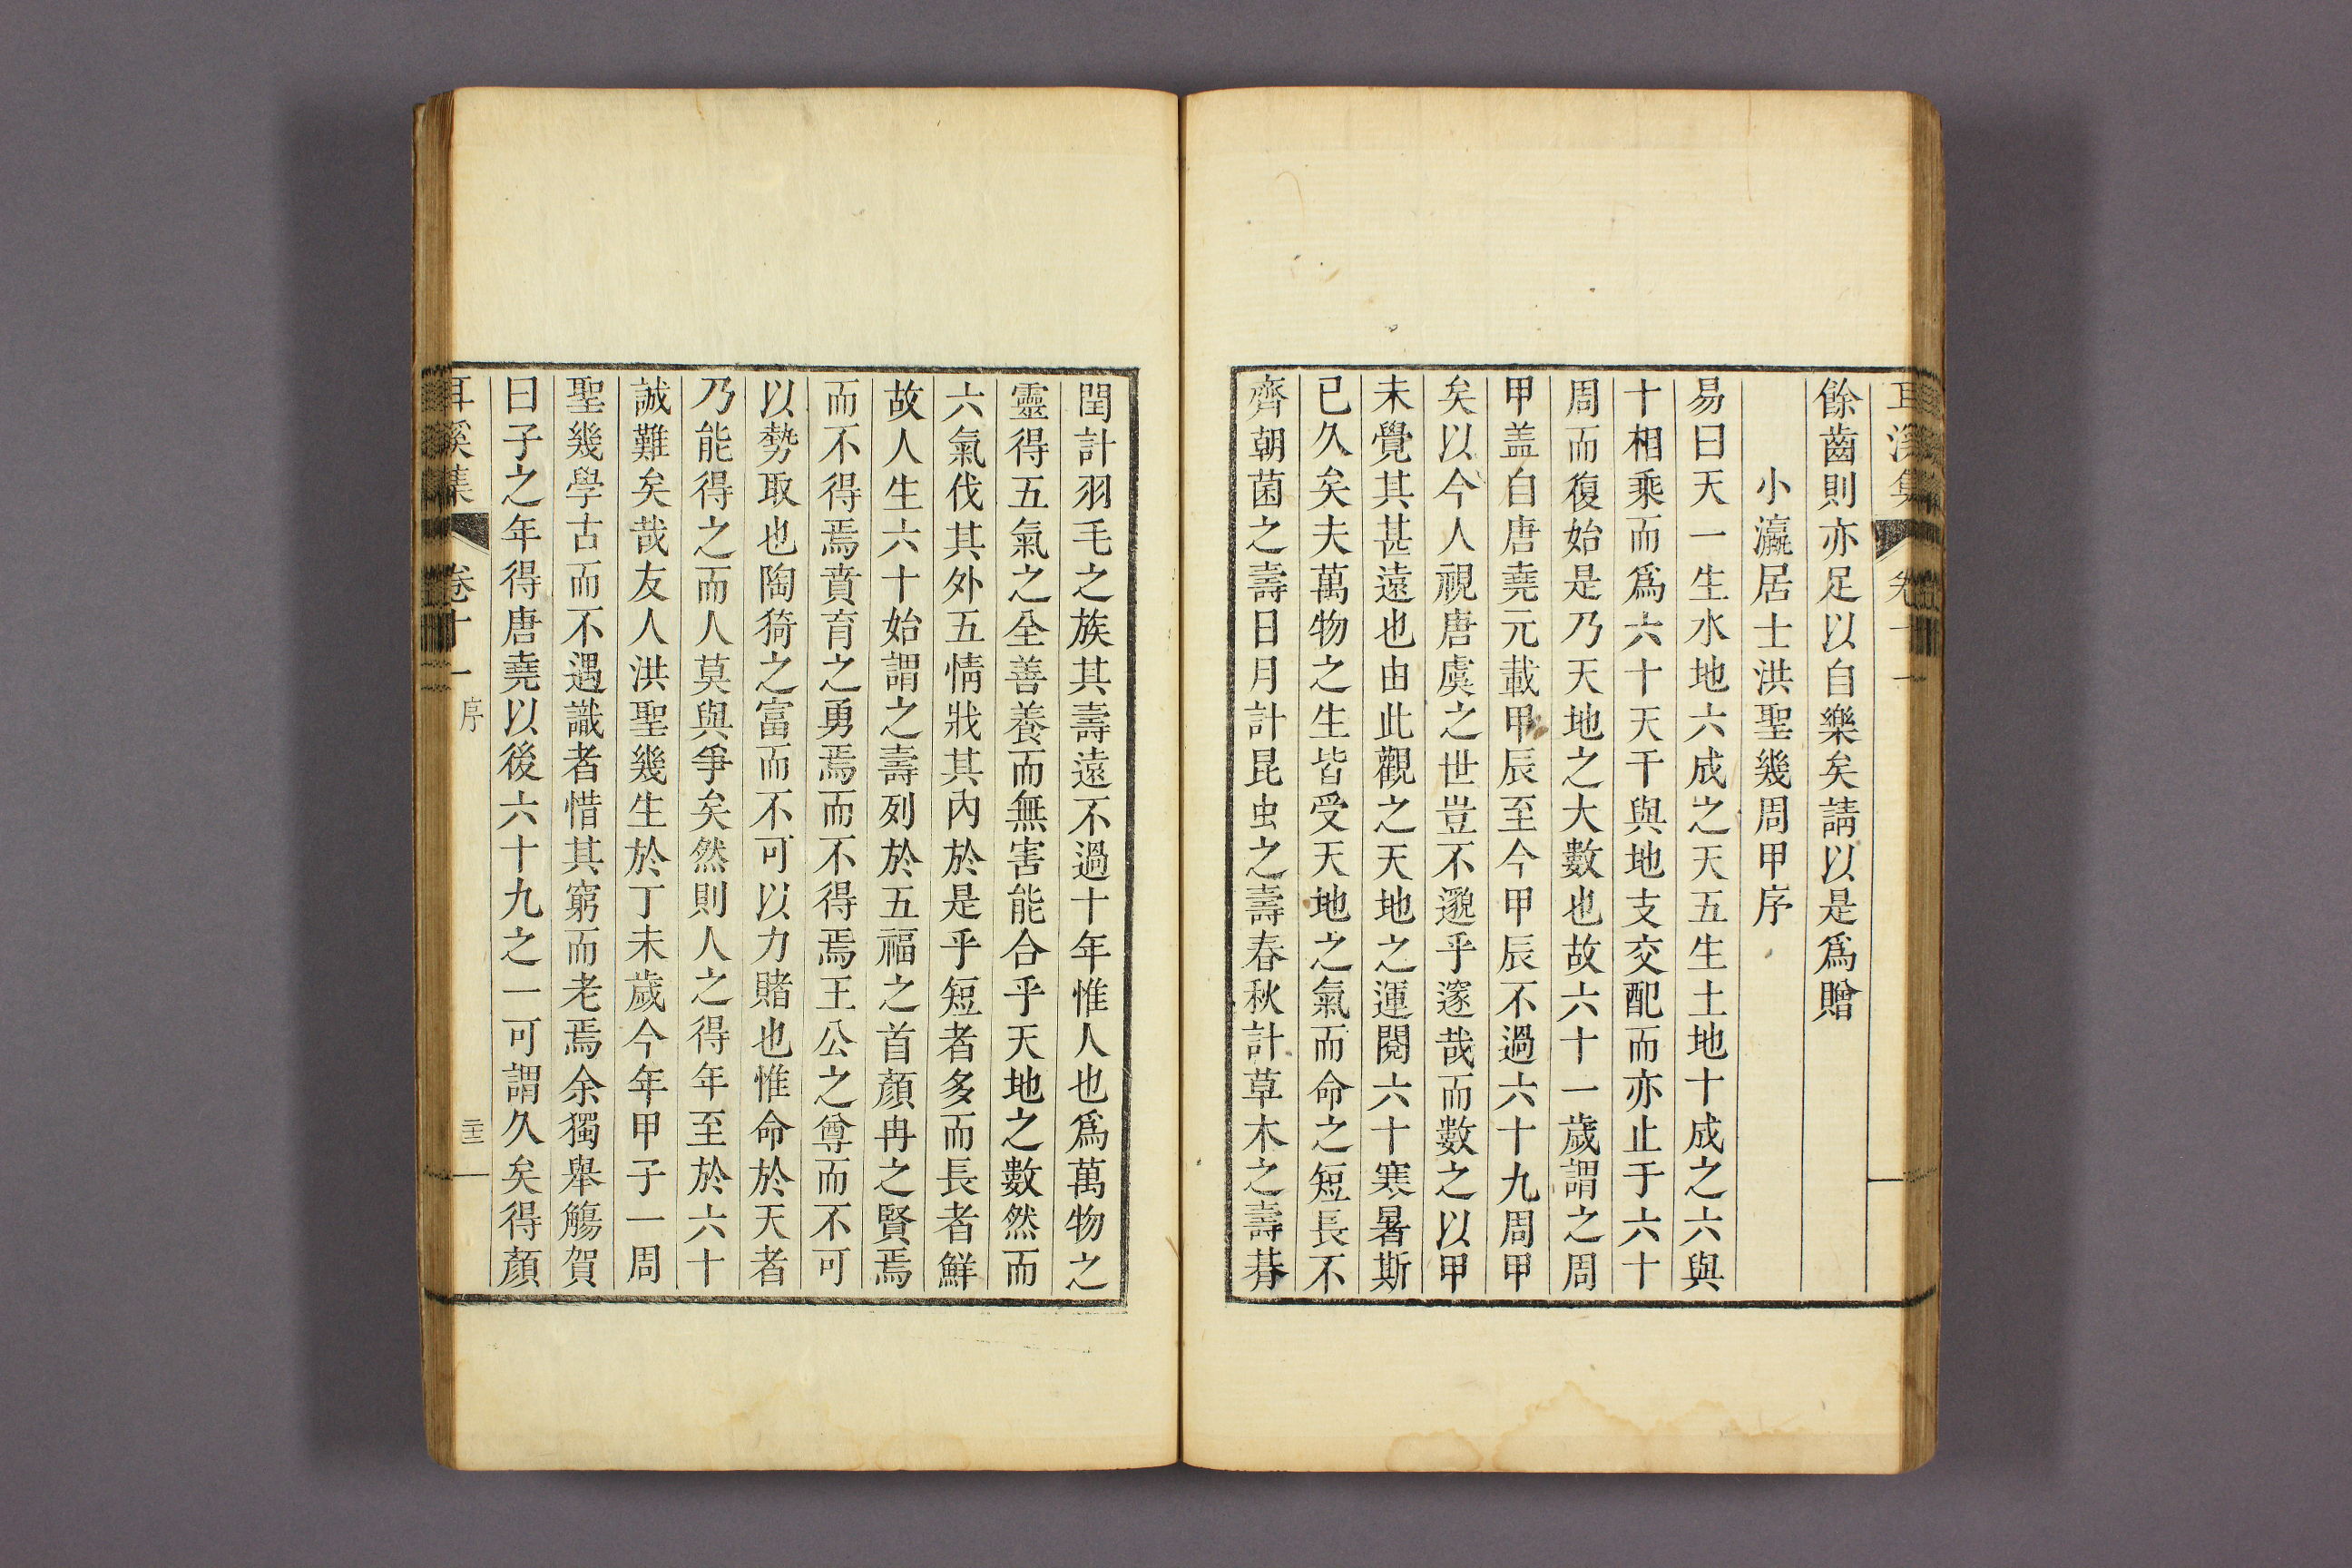 餘齒則亦足以自樂矣請以是爲贈
小瀛居士洪聖幾周甲序
易曰天一生水地六成之天五生土地十成之六與
十相乘而爲六十天干與地支交配而亦止于六十
周而復始是乃天地之大數也故六十一歲謂之周
甲盖自唐堯元載甲辰至今甲辰不過六十九周甲
矣以今人視唐虞之世豈不邈乎邃哉而數之以甲
未覺其甚遠也由此觀之天地之運閱六十寒暑斯
已久矣夫萬物之生皆受天地之氣而命之短長不
齊朝菌之壽日月計昆虫之壽春秋計草木之壽朞
閏計羽毛之族其壽遠不過十年惟人也爲萬物之
靈得五氣之全善養而無害能合乎天地之數然而
六氣伐其外五情戕其內於是乎短者多而長者鮮
故人生六十始謂之壽列於五福之首顏冉之賢焉
而不得焉賁育之勇焉而不得焉王公之尊而不可
以勢取也陶猗之富而不可以力賭也惟命於天者
乃能得之而人莫與爭矣然則人之得年至於六十
誠難矣哉友人洪聖幾生於丁未歲今年甲子一周
聖幾學古而不遇識者惜其窮而老焉余獨舉觴賀
曰子之年得唐堯以後六十九之一可謂久矣得顏
耳溪集 卷十一 序